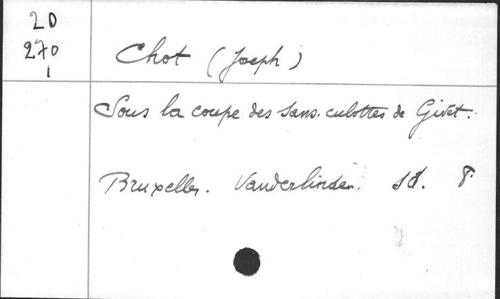 20
270
1
Chot (Joseph)
Sous la coupe des sans-culottes de Givet.
Bruxelles. Vanderlinden. sd. 8°